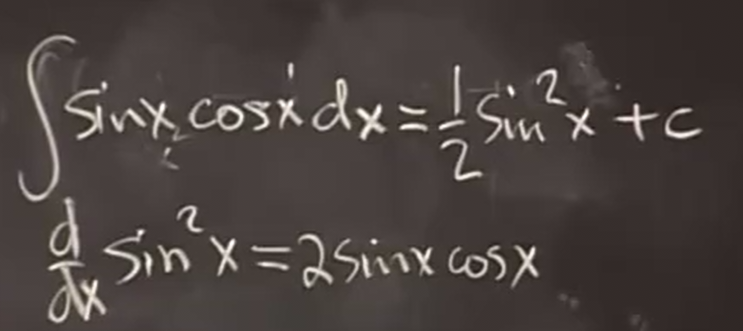 ∫ sinx cosx dx = 1/2 sin²x + c
d/dx sin²x = 2sinx cosx